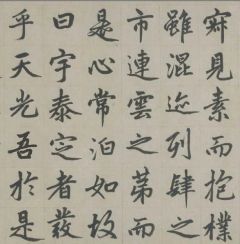 寂見素而抱樸
雖混迹列肆之
市連雲之第而
是心常泊如故
曰宇泰定者發
乎天光吾於是